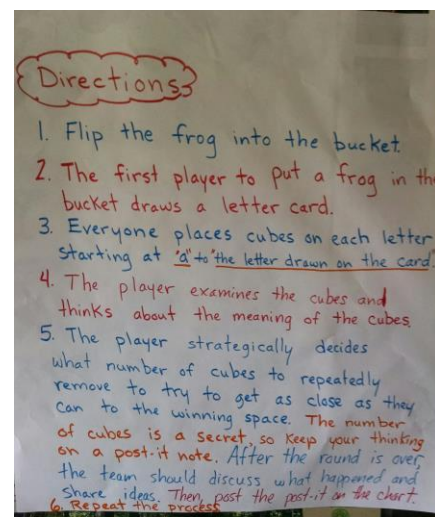 Directions
1. Flip the frog into the bucket.
2. The first player to put a frog in the
bucket draws a letter card.
3. Everyone places cubes on each letter
starting at "a" to "the letter drawn on the card".
4. The player examines the cubes and
thinks about the meaning of the cubes.
5. The player strategically decides
what number of cubes to repeatedly
remove to try to get as close as they
can to the winning space. The number
of cubes is a secret, so keep your thinking
on a post-it note. After the round is over,
the team should discuss what happened and
share ideas. Then, post the post-it on the chart.
6. Repeat the process